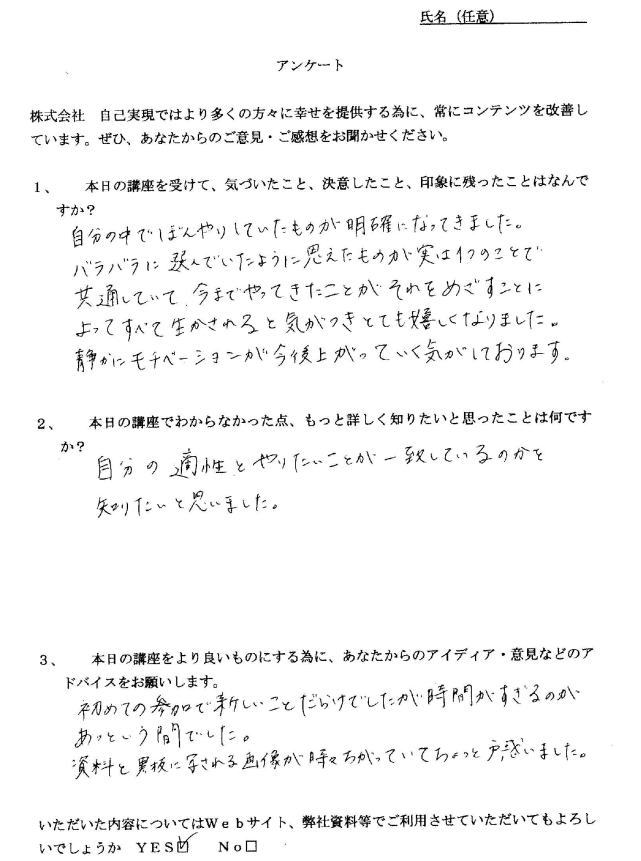 氏名（任意）
アンケート
株式会社　自己実現ではより多くの方々に幸せを提供する為に、常にコンテンツを改善し
ています。ぜひ、あなたからのご意見・ご感想をお聞かせください。
１、　本日の講座を受けて、気づいたこと、決意したこと、印象に残ったことはなんで
すか？
自分の中でぼんやりしていたものが明確になってきました。
バラバラに選んでいたように思えたものが実は1つのことで
共通していて、今までやってきたことがそれをめざすことに
よってすべて生かされると気がつきとても嬉しくなりました。
静かにモチベーションが今後上がっていく気がしております。
２、　本日の講座でわからなかった点、もっと詳しく知りたいと思ったことは何です
か？
自分の適性とやりたいことが一致しているのかを
知りたいと思いました。
３、　本日の講座をより良いものにする為に、あなたからのアイディア・意見などのア
ドバイスをお願いします。
初めての参加で新しいことだらけでしたが時間がすぎるのが
あっという間でした。
資料と黒板に写される画像が時々ちがっていてちょっと戸惑いました。
いただいた内容についてはＷｅｂサイト、弊社資料等でご利用させていただいてもよろし
いでしょうか　ＹＥＳ☑　Ｎｏ□